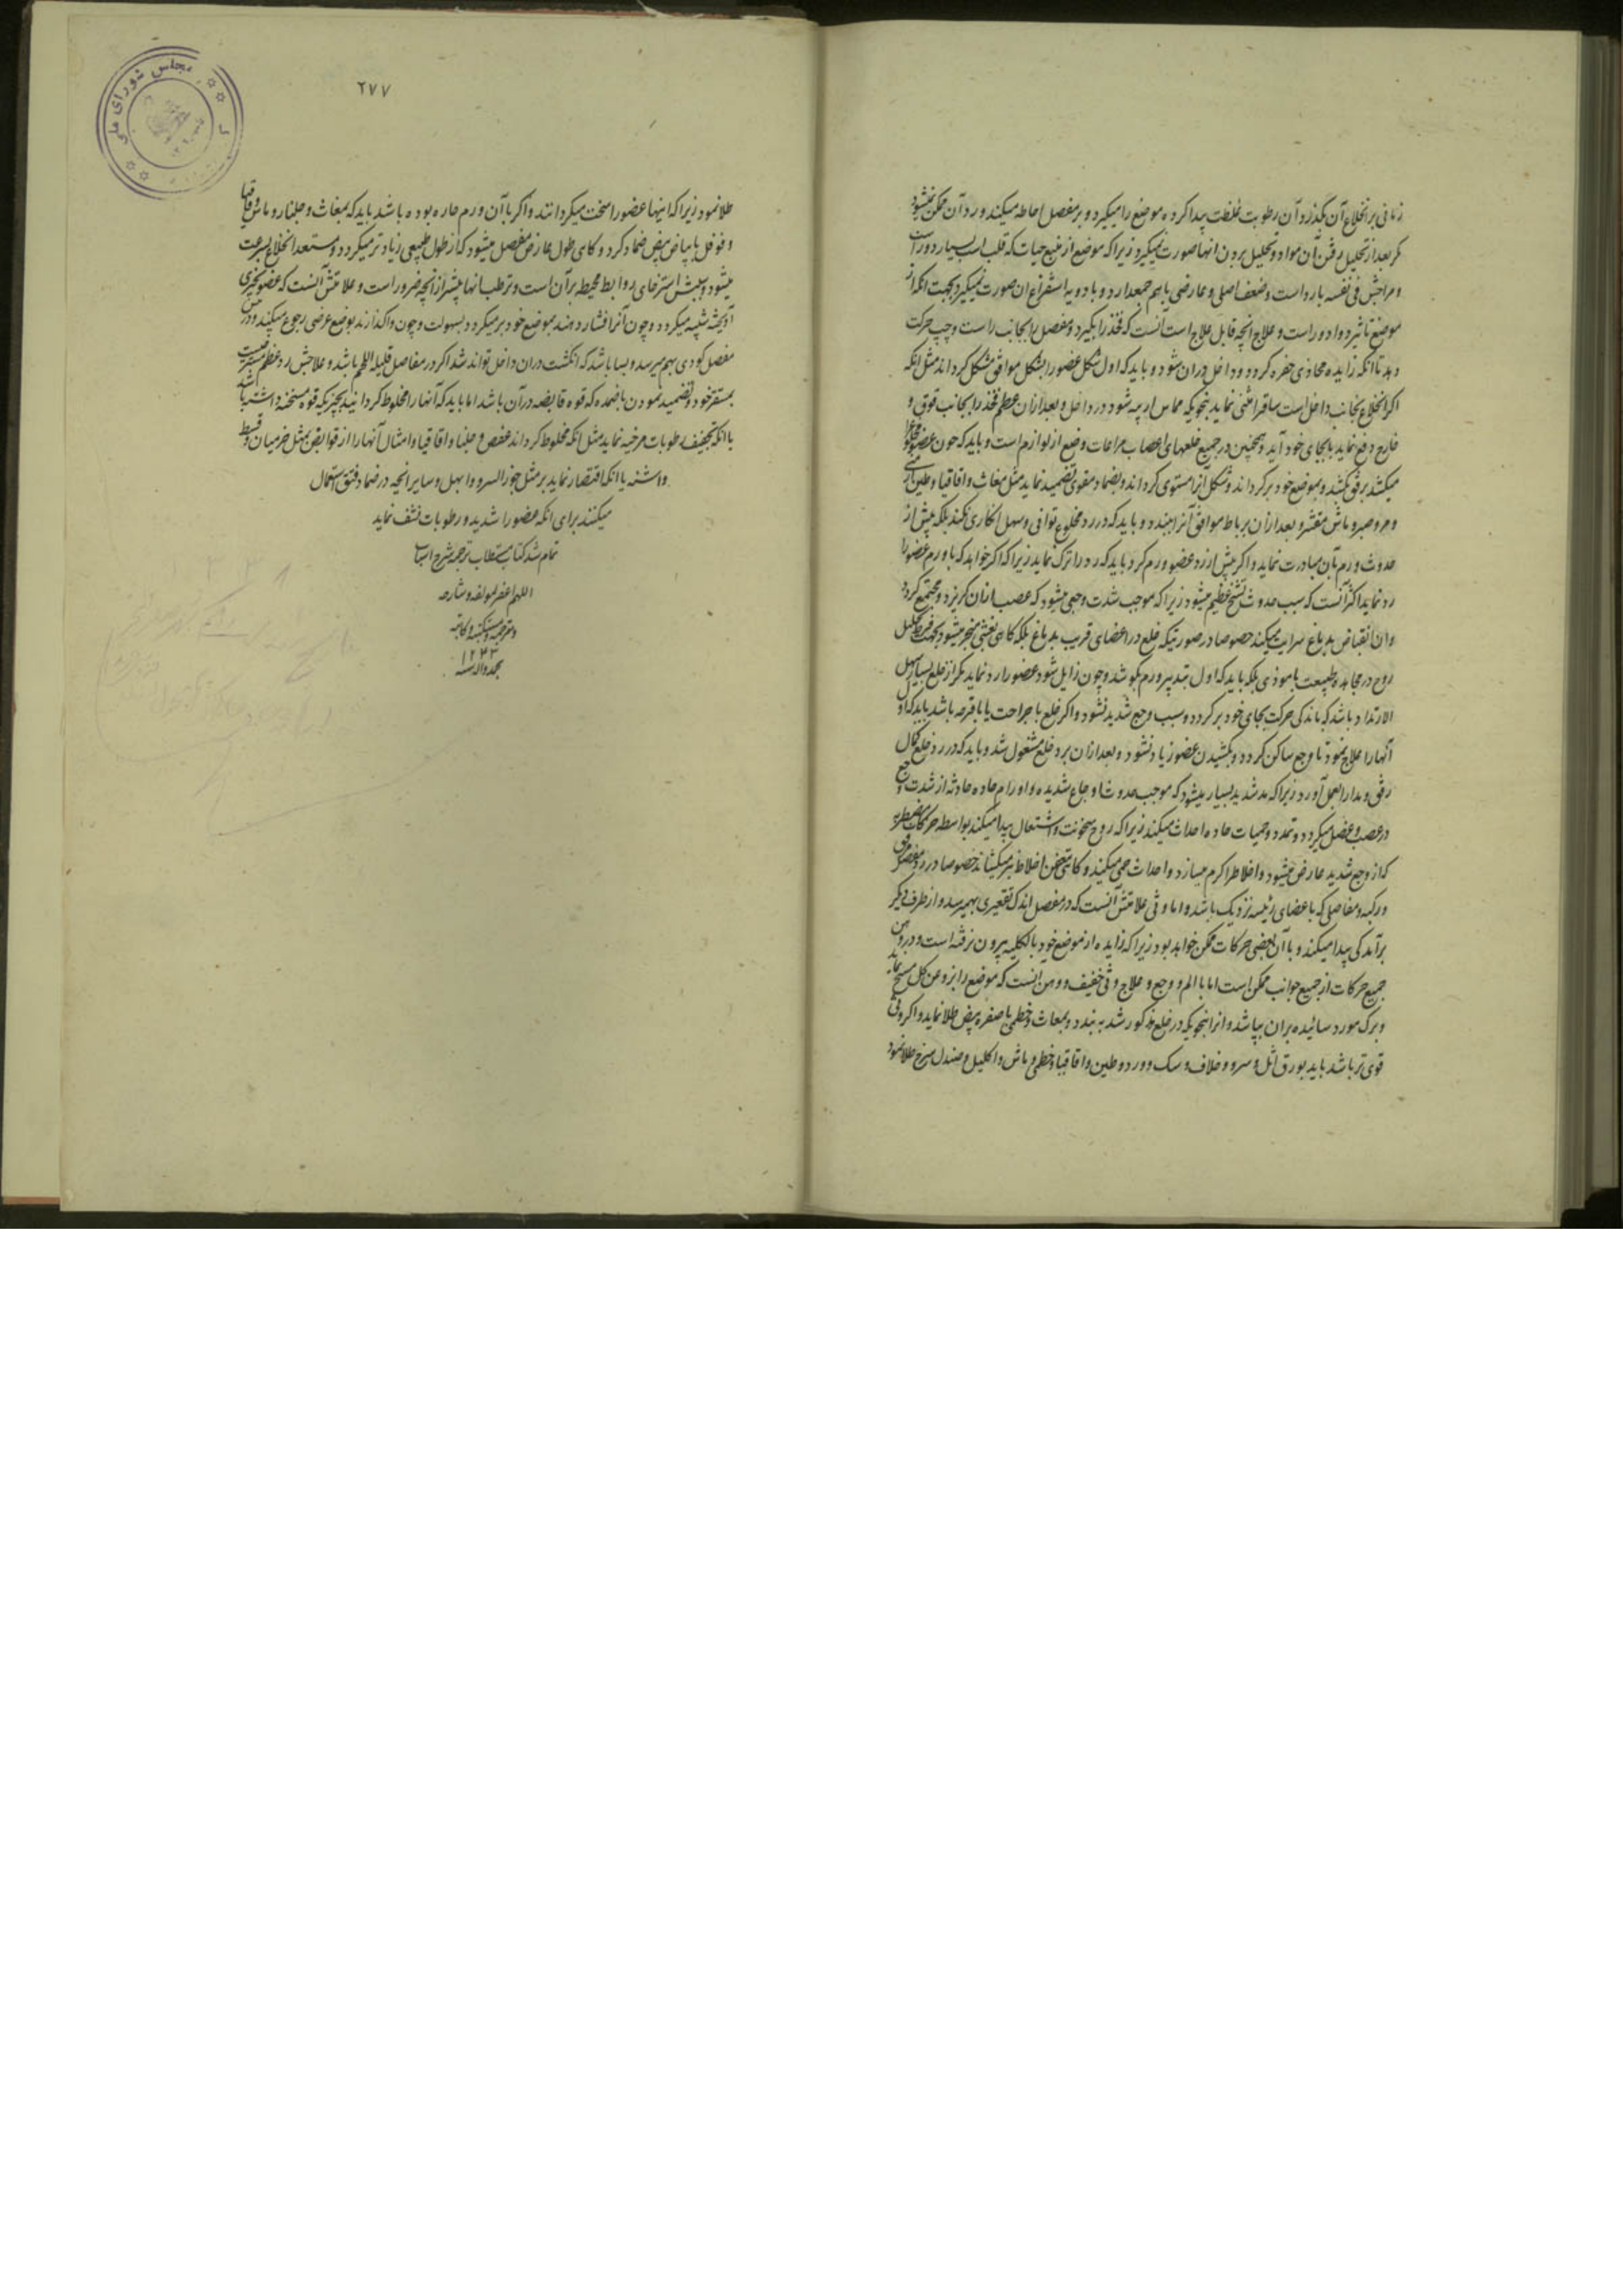 زمانی بر انخلاع آن بگذرد آن رطوبت غلظت پیدا کرده موضع را میگیرد و بر مفصل احاطه میکند و رد آن ممکن نمیشود
مگر بعد از تحلیل رفتن آن مواد و تحلیل بردن انها صورت نمیگیرد زیرا که موضع از منبع حیات که قلب است بسیار دور است
و مزاجش فی نفسه بارد است و ضعف اصلی و عارضی باهم جمع دارد و بادویه استفراغ ان صورت نمیگیرد بجهت انکه از
موضع تاثیر دوا دور است و علاج انچه قابل علاج است آنست که فخذ را بگیرد و مفصل را بجانب راست و چپ حرکت
دهد تا انکه زایده محاذی حفره کردد و داخل دران شود و باید که اول شکل عضو را بشکل موافق مشکل کرداند مثل انکه
اکر انخلاع بجانب داخل است ساق را مثنی نماید بنحویکه مماس اربیه شود در داخل و بعد ازان عظم فخذ را بجانب فوق و
خارج دفع نماید تا بجای خود آید و همچنین در جمیع خلعهای اعصاب مراعات وضع از لوازم است و باید که چون عضو مخلوع را
میکشد برفق بکشد و بموضع خود برکرداند و شکل آنرا مستوی کرداند و بضماد مقوی تضمید نماید مثل مغاث و اقاقیا و طین ارمنی
و مر و صبر و ماش مقشر و بعد ازان برباط موافق آنرا ببندد و باید که در رد مخلوع توانی و سهل انکاری نکند بلکه پیش از
حدوث ورم بآن مبادرت نماید و اکر پیش از رد عضو ورم کرد باید که رد را ترک نماید زیرا که اکر خواهد که با ورم عضو را
رد نماید اکثر آنست که سبب حدوث تشنج عظیم میشود زیرا که موجب شدت وجعی میشود که عصب ازان کریزد و مجتمع کردد
وان انقباض بدماغ سرایت میکند خصوصا در صورتیکه خلع در اعضای قریب بدماغ بلکه کاهی بغشی منجر میشود بجهت فرط تحلیل
روح در مجاهده طبیعت با موذی بلکه باید که اول بتدبیر ورم بکوشد و چون زایل شود عضو را رد نماید مکر از خلع بسیار سهل
الارتداد باشد که باندکی حرکت بجای خود برکردد و سبب وجع شدید نشود و اکر خلع با جراحت یا با قرحه باشد باید که اول
آنها را علاج نمود تا وجع ساکن کردد و بکشیدن عضو زیاد نشود و بعد ازان برد خلع مشغول شد و باید که در رد خلع کمال
رفق و مدارا بعمل آورد زیرا که مد شدید بسیار میشود که موجب حدوث اوجاع شدیده و اورام حاده حادثه از شدت وجع
در عصب و عضل میکردد و تمدد و حمیات حاده احداث میکند زیرا که روح سخونت و اشتعال پیدا میکند بواسطه حرکات مضطربه
که از وجع شدید عارض میشود و اخلاط را کرم میسازد و احداث حمی میکند و کاه بتعفن اخلاط نیز میکشاند خصوصا در رد مفصل مرفق
و رکبه و مفاصلی که باعضای رئیسه نزدیک باشد و اما وثی علامتش آنست که در مفصل اندک تقعیری بهم رسد و از طرف دیکر
برآمدکی پیدا میکند و با آن بعضی حرکات ممکن خواهد بود زیرا که زایده از موضع خود بالکلیه بیرون نرفته است و در وهن
جمیع حرکات از جمیع جوانب ممکن است اما با الم و وجع و علاج وثی خفیف و وهن آنست که موضع را بروغن کل مسح نماید
و برک مورد سائیده بران بپاشد و انرا بنحویکه در خلع مذکور شد به بندد و بمغاث و خطمی با صفره بیض طلا نماید و اکر وثی
قوی تر باشد باید بورق اثل و سرو و خلاف و سک و ورد و طین و اقاقیا و خطمی و ماش و اکلیل و صندل سرخ طلا نمود
۲۷۷
مجلس شورای ملی
طلا نمود زیرا که اینها عضو را سخت میکردانند و اکر با آن ورم حاره بوده باشد باید که بمغاث و جلنار و ماش و اقاقیا
و فوفل با بیاض بیض ضماد کرد و کاهی طول عارض مفصل میشود که از طول طبیعی زیادتر میکردد و مستعد انخلاع بسرعت
میشود و سببش استرخای روابط محیطه بر آن است و ترطب انها بیشتر از انچه ضرور است و علامتش آنست که عضو بچیزی
آویخته شبیه میکردد و چون آنرا فشار دهند بموضع خود برمیکردد بسهولت و چون واکذارند بوضع عرضی رجوع میکند و در
مفصل کودی بهم میرسد و بسا باشد که انکشت دران داخل تواند شد اکر در مفاصل قلیله اللحم باشد و علاجش رد عظم مسترخیست
بمستقر خود و تضمید نمودن باضمده که قوه قابضه در آن باشد اما باید که آنها را مخلوط کردانید بچیزیکه قوه مسخنه داشته باشد
یا انکه تجفیف رطوبات مرخیه نماید مثل انکه مخلوط کرداند عفص و جلنار و اقاقیا و امثال آنها را از قوابض بمثل خرمیان و قسط
و اشنه یا انکه اقتصار نماید بر مثل جوز السرو و ابهل و سایر انچه در ضماد فتق استعمال
میکنند برای انکه عضو را شدید و رطوبات نشف نماید
تمام شد کتاب مستطاب ترجمه شرح اسباب
اللهم اغفر لمؤلفه و شارحه
و مترجمه و مستکتبه و کاتبه
۱۲۳۳
بمحمد و آله